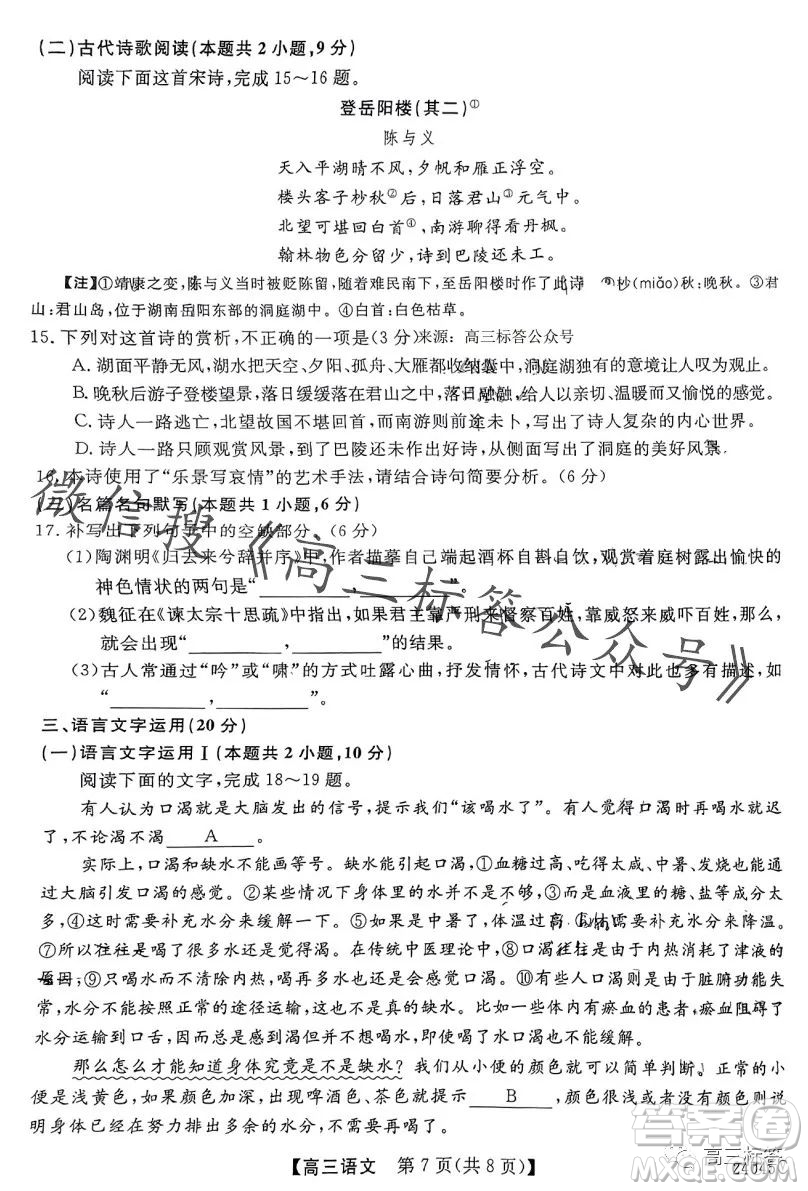 (二)古代诗歌阅读(本题共2小题,9分)
阅读下面这首宋诗,完成15～16题。
登岳阳楼(其二)①
陈与义
天入平湖晴不风,夕帆和雁正浮空。
楼头客子杪秋②后,日落君山③元气中。
北望可堪回白首④,南游聊得看丹枫。
翰林物色分留少,诗到巴陵还未工。
【注】①靖康之变,陈与义当时被贬陈留,随着难民南下,至岳阳楼时作了此诗 杪(miǎo)秋:晚秋。③君
山:君山岛,位于湖南岳阳东部的洞庭湖中。④白首:白色枯草。
15.下列对这首诗的赏析,不正确的一项是(3分)来源:高三标答公众号
A.湖面平静无风,湖水把天空、夕阳、孤舟、大雁都收纳囊 ,洞庭湖独有的意境让人叹为观止。
B.晚秋后游子登楼望景,落日缓缓落在君山之中, 融融,给人以亲切、温暖而又愉悦的感觉。
C.诗人一路逃亡,北望故国不堪回首,而南游则前途未卜,写出了诗人复杂的内心世界。
D.诗人一路只顾观赏风景,到了巴陵还未作出好诗,侧面写出了洞庭的美好风景
16.本诗使用了“乐景写哀情”的艺术手法,请结合诗句简要分析。(6分)
(三)名篇名句默写(本题共1小题,6分)
17.补写出下列句子中的空缺部分。(6分)
(1)陶渊明《归去来兮辞并序》中,作者描摹自己端起酒杯自斟自饮,观赏着庭树露出愉快的
神色情状的两句是“________,________”。
(2)魏征在《谏太宗十思疏》中指出,如果君王靠严刑来督察百姓,靠威怒来威吓百姓,那么,
就会出现“________,________”的结果。
(3)古人常通过“吟”或“啸”的方式吐露心曲,抒发情怀,古代诗文中对此也多有描述,如
“________,________”。
三、语言文字运用(20分)
(一)语言文字运用Ⅰ(本题共2小题,10分)
阅读下面的文字,完成18～19题。
有人认为口渴就是大脑发出的信号,提示我们“该喝水了”,有人觉得口渴时再喝水就迟
了,不论渴不渴 A 。
实际上,口渴和缺水不能画等号。①血糖过高、吃得太咸、中暑、发烧也能通
过大脑引发口渴的感觉。②某些情况下身体里的水并不是不够,③而是血液里的糖、盐等成分太
多,④这时需要补充水分来稀释。⑤如果是中暑了,体温过高, 需要补充水分来降温。
⑦往往是喝了很多水还是觉得渴。⑧在传统中医理论中, 口渴往往是因为内热消耗了津液的
原因;⑨只喝水而不清除内热,是不能解渴的。⑩有些人口渴是由于脏腑功能失
常,水分不能按照正常的途径运输,并不是真的缺水。比如一些有瘀血的患者,瘀血阻碍了
水分运输到口舌,就会感到口渴但并不想喝水,不需要喝很多水。
那么怎么才能知道身体究竟是不是缺水?我们从小便的颜色就可以简单判断。正常的小
便是浅黄色,如果颜色加深,出现啤酒色、茶色就提示 B ,颜色很浅或者没有颜色则说
明身体已经在努力排出多余的水分,不需要再喝了。
【高三语文 第7页(共8页)】
24045C
微信搜《高三标答公众号》
高三标答
答案圈
MXQE.COM